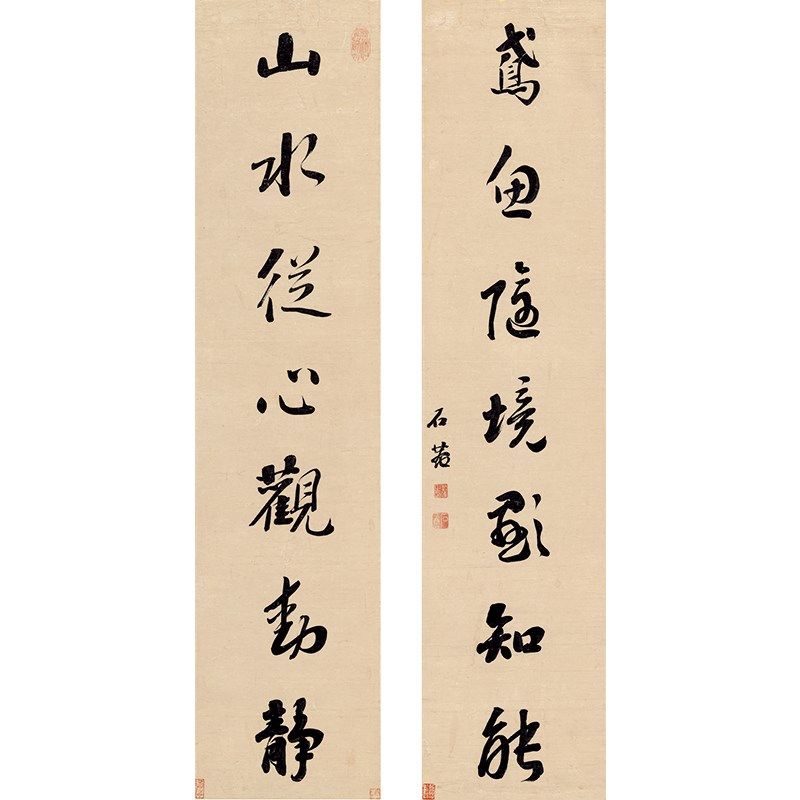 山水從心觀動靜
鳶魚隨境顯知能
石菴